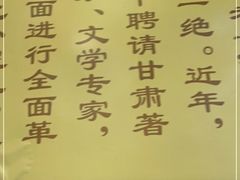 一绝。近年，
聘请甘肃著
、文学专家，
面进行全面革